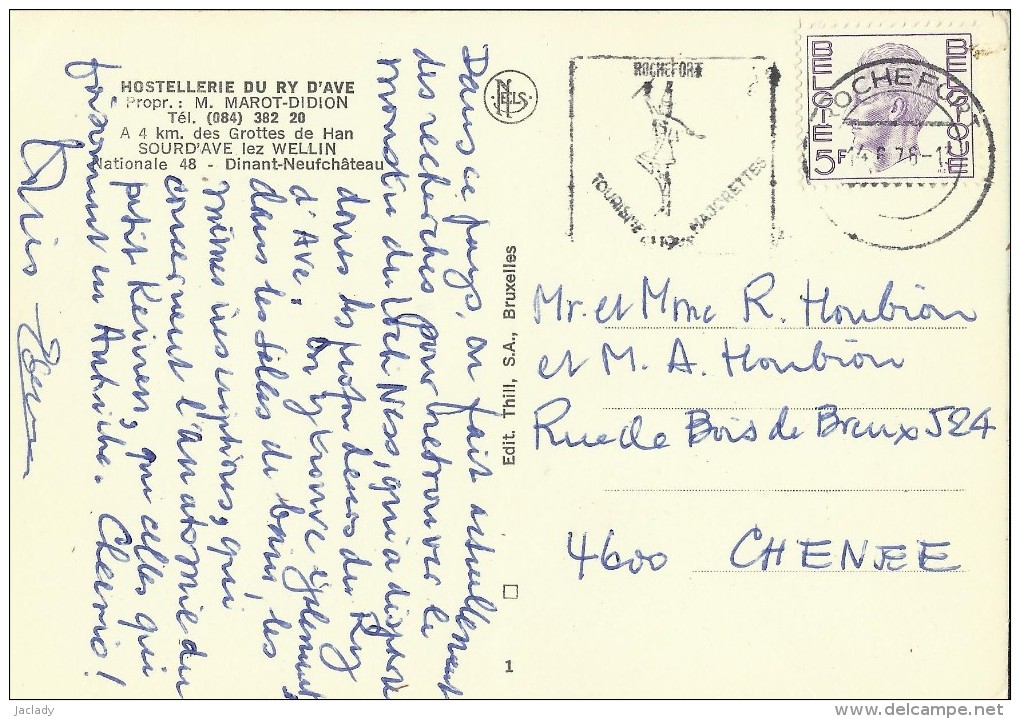 HOSTELLERIE DU RY D'AVE
Propr.: M. MAROT-DIDION
Tél. (084) 382 20
A 4 km. des Grottes de Han
SOURD'AVE lez WELLIN
Nationale 48 - Dinant-Neufchâteau
Dans ce pays, on fait actuellement
des recherches pour retrouver le
monstre du Loch Ness, qui a disparu
dans les profondeurs du Ry
d'Ave. On y trouve également,
dans les salles de bains, les
mêmes inscriptions, qui
concernent l'anatomie du
petit Kévinen, que celles qui
foisonnent en Autriche. Cheerio!
NELS
Edit. Thill, S.A., Bruxelles
1
ROCHEFORT
TOURISME MAJORETTES
BELGIE 5F BELGIQUE
ROCHEFORT
Mr. et Mme R. Houbion
et M. A. Houbion
Rue de Bois de Breux 524
4600 CHENEE
jaclady
delcampe.net